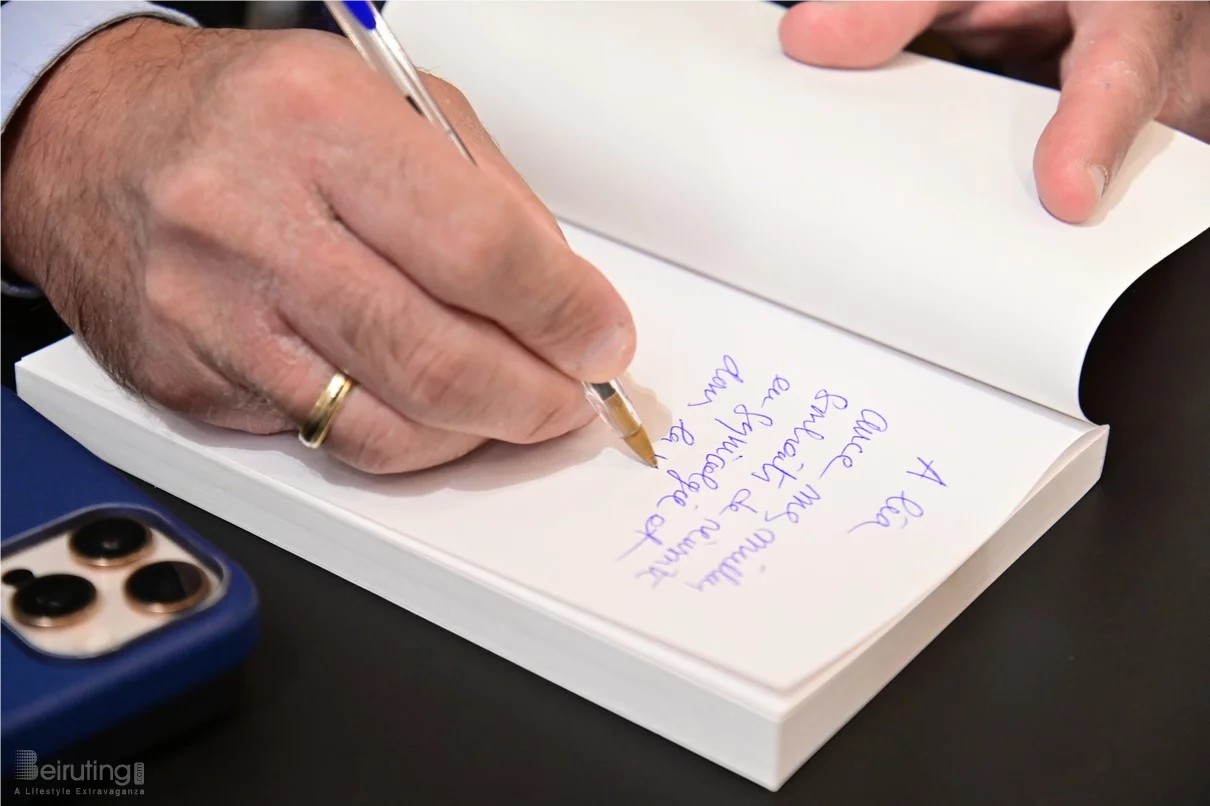 A léa
avec mes meilleurs
Souhaits de réussite
en Psychologie et
dans la
Beiruting.com
A Lifestyle Extravaganza